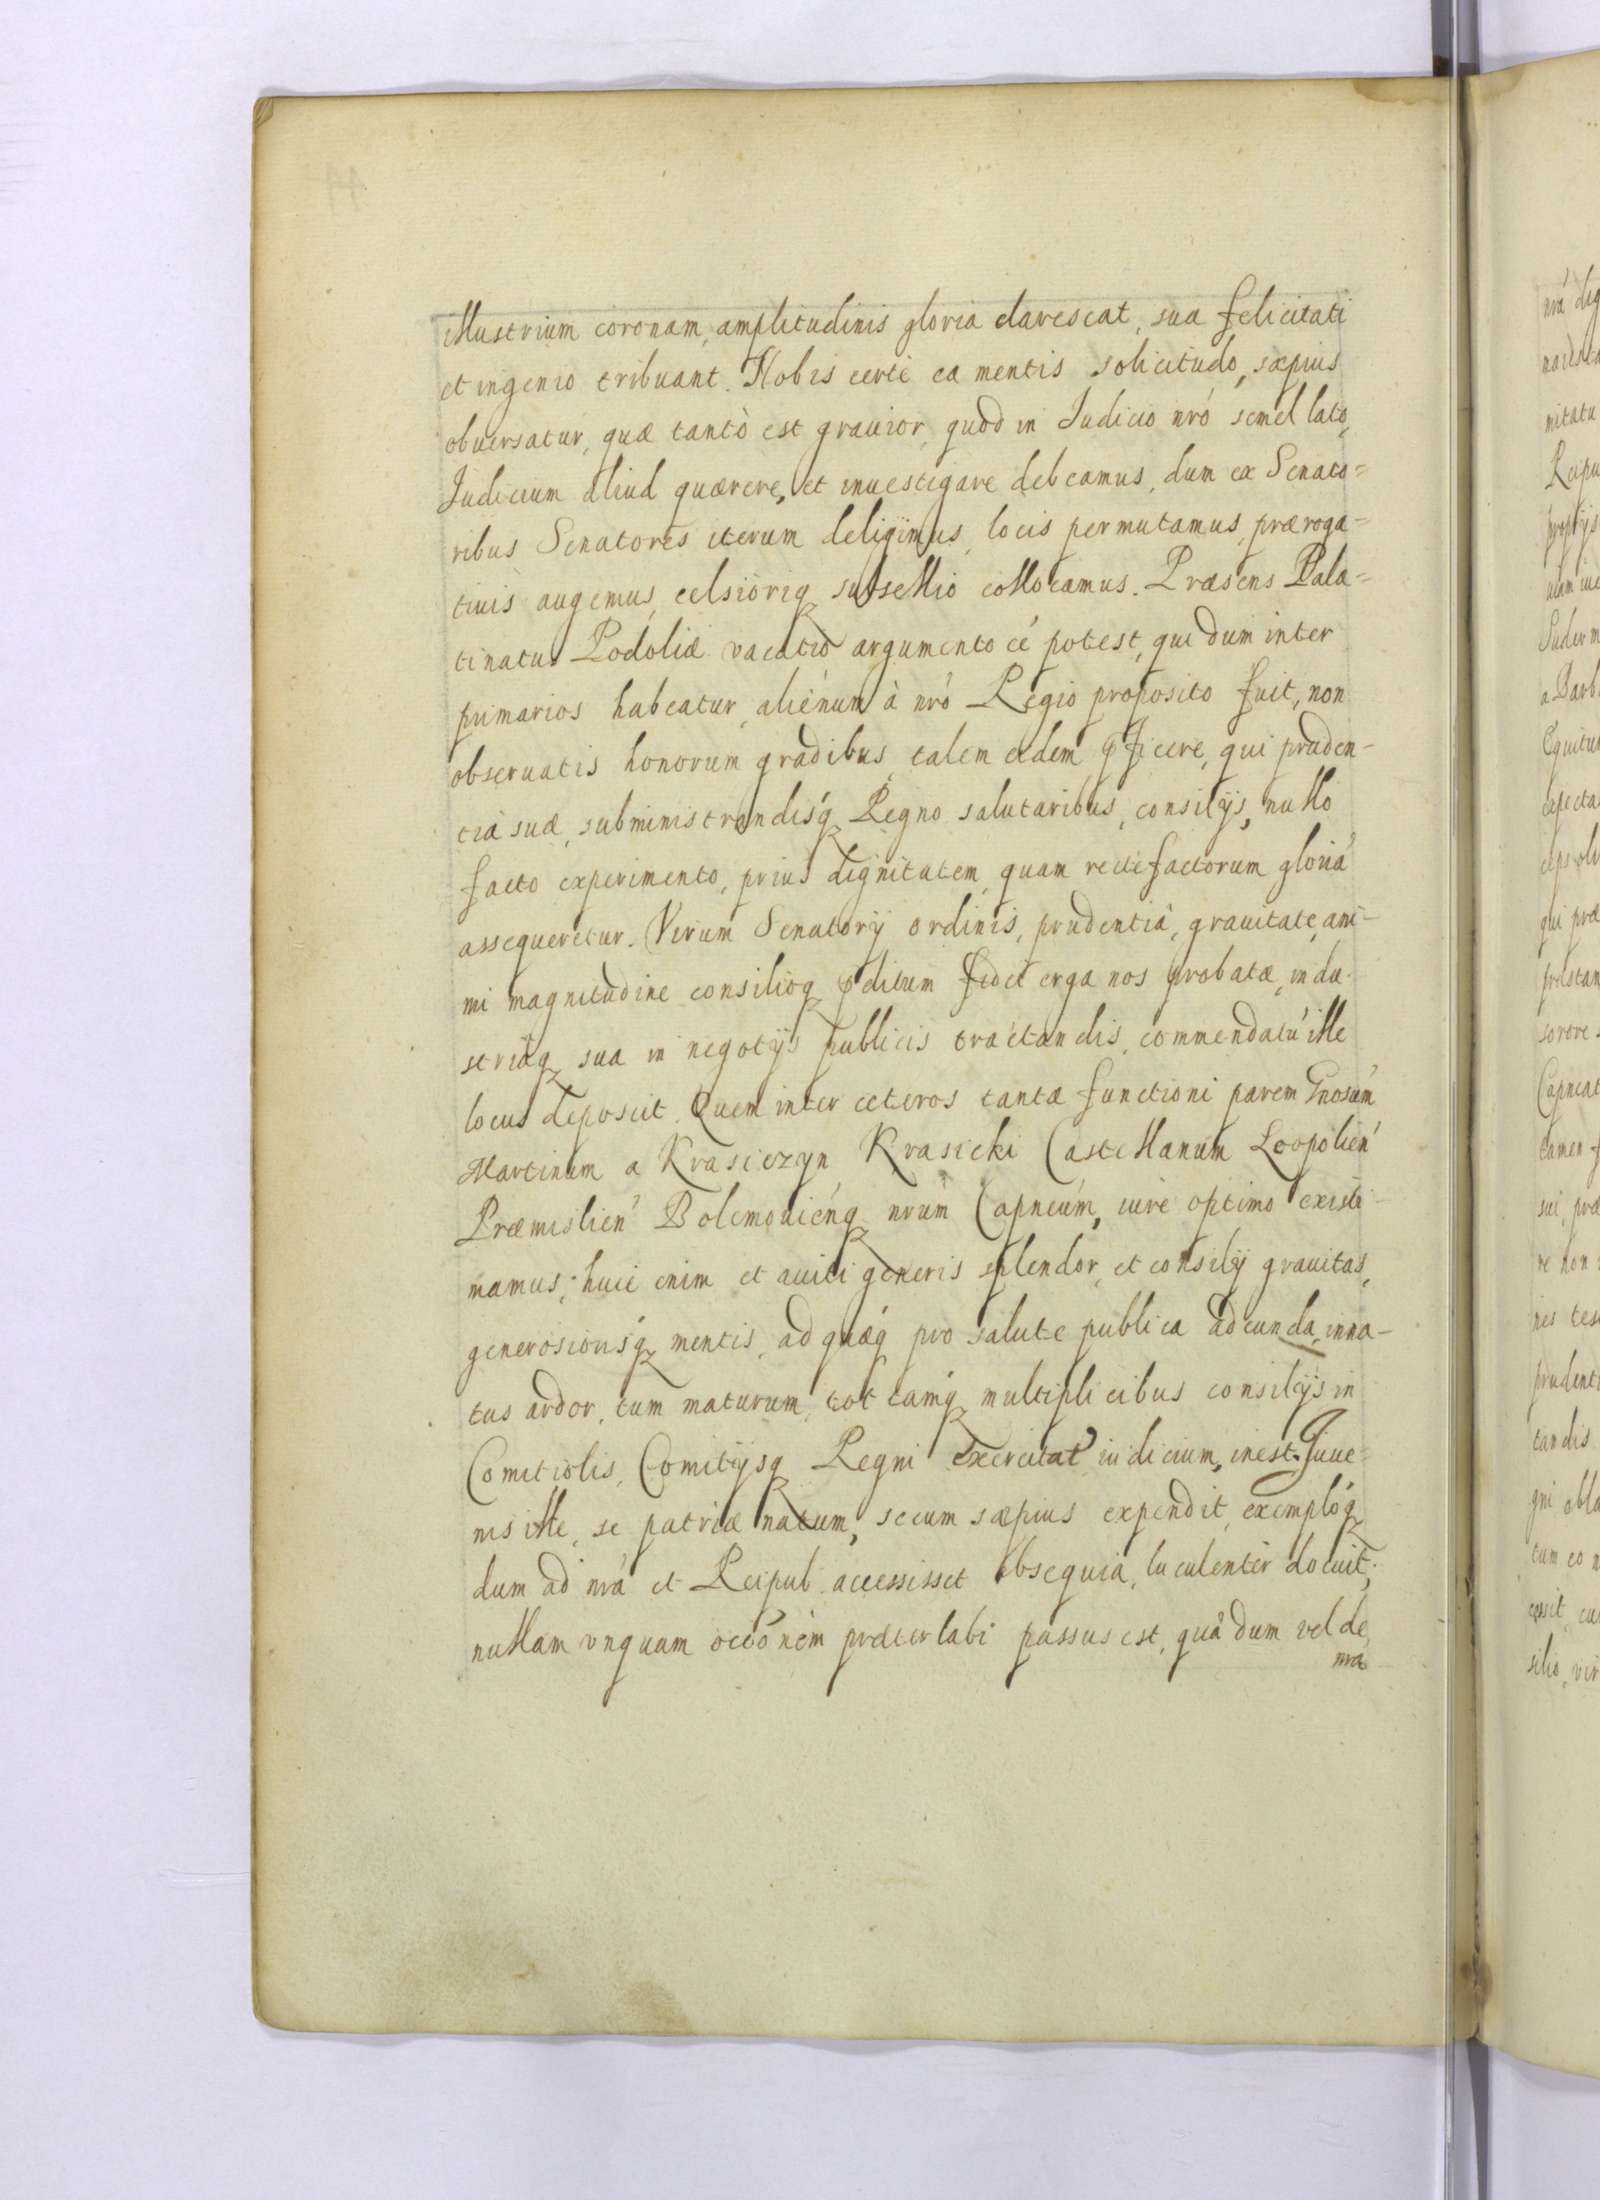 illustrium coronam, amplitudinis gloria clarescat, sua felicitati
et ingenio tribuant. Nobis certè ea mentis solicitudo, sæpius
obuersatur, quæ tantò est grauior, quod in Iudicio nró semel lato,
Iudicium aliud quærere, et inuestigare debeamus, dum ex Senato=
ribus Senatores iterum deligimus, locis permutamus, præroga=
tiuis augemus, celsioriq subsellio collocamus. Præsens Pala=
tinatus Podoliæ vacatio argumento eé potest, qui dum inter
primarios habeatur, aliénum à nró Regio proposito fuit, non
obseruatis honorum gradibus, talem eidem pficere, qui pruden-
tiæ suæ, subministrandisq́ Regno salutaribus, consilijs, nullo
facto experimento, prius dignitatem, quam rectè factorum gloriá
assequeretur. Virum Senatorij ordinis, prudentiâ, grauitate, ani-
mi magnitudine consilioq pditum fidei erga nos probatæ, indu-
striâq sua in negotijs publicis tractandis, commendatú ille
locus deposcit. Quem inter ceteros tantæ functioni parem Gnosúm
Martinum a Krasiczyn Krasicki Castellanum Leopolień
Præmislień Bolemouiénq nrúm Capneúm, iure optimo existi-
mamus; huic enim et auiti generis splendor, et consilij grauitas,
generosiorisq́ mentis, ad quæq́ pro salute publica adeunda, inna-
tus ardor, tum maturum, tot tamq́ multiplicibus consilijs in
Comitiolis, Comitijsq Regni exercitat iudicium, inest. Iuue-
nis ille, se patriæ natum, secum sæpius expendit, exemploq́
dum ad nrá et Reipub accessisset obsequia, luculenter docuit;
nullam vnquam occóném præterlabi passus est, quâ dum vel de
nra